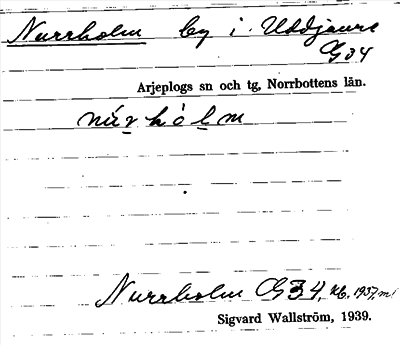 Nurrholm by i Uddjaure
G34
Arjeplogs sn och tg, Norrbottens län.
nu̇rhȯlm
Nurrholm G34, kb. 1937, m.
Sigvard Wallström, 1939.